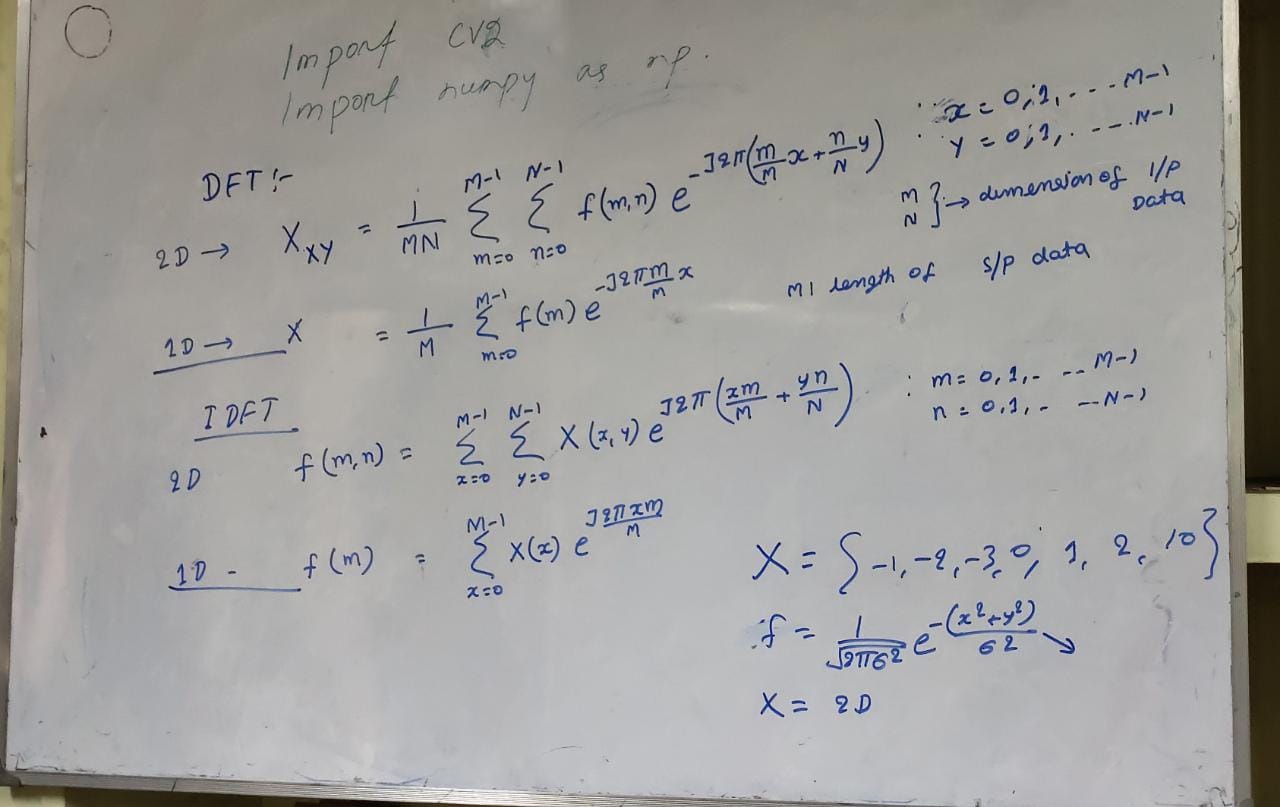 Import cv2
Import numpy as np.
DFT :-
2D → X_XY = 1/MN Σ_{m=0}^{M-1} Σ_{n=0}^{N-1} f(m,n) e^{-J2π(m/M x + n/N y)} : x = 0,1,...M-1
: y = 0,1,...N-1
M N } → dimension of I/P Data
1D → X = 1/M Σ_{m=0}^{M-1} f(m) e^{-J2πm/M x} M1 length of s/p data
IDFT
2D f(m,n) = Σ_{x=0}^{M-1} Σ_{y=0}^{N-1} X(x,y) e^{J2π(xm/M + yn/N)} : m = 0,1,-..M-1
n = 0,1,-..N-1
1D - f(m) = Σ_{x=0}^{M-1} X(x) e^{J2πxm/M}
X = {-1,-2,-3,0, 1, 2, 10}
f = 1/√2πσ2 e^{-(x2+y2)/σ2} ↘
X = 2D